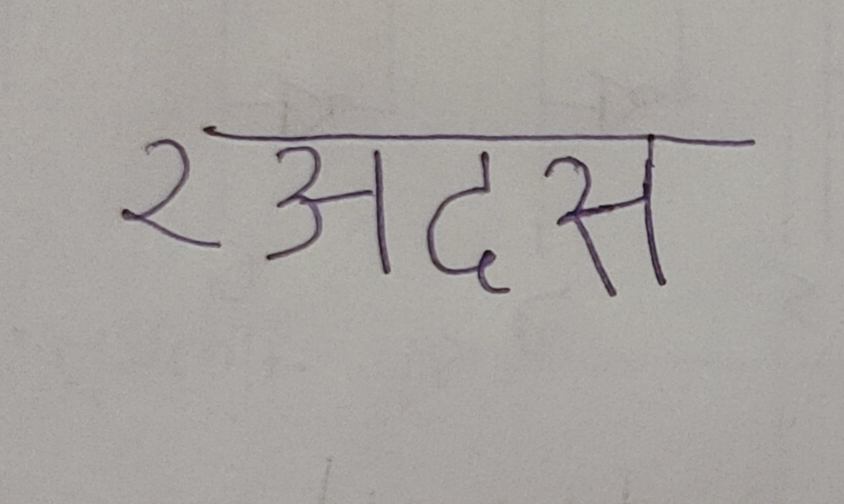 २अदस